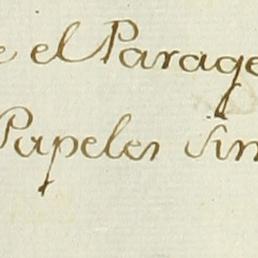 e el Parage
Papeles sin